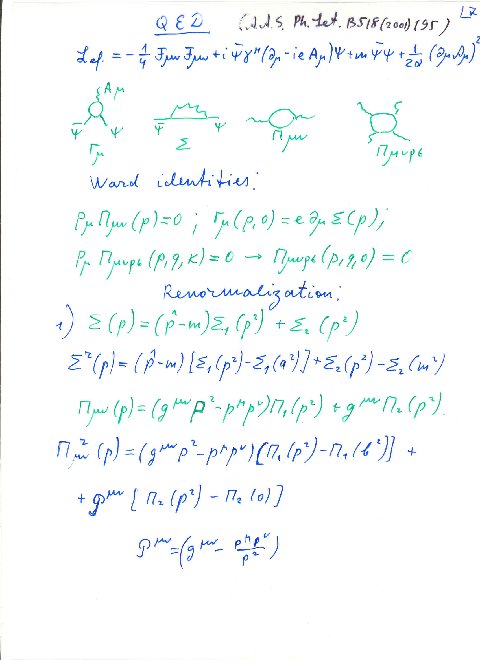 QED (A.A.S. Ph. Let. B518 (2001) 195) L7
Lef. = -1/4 Fμν Fμν + i Ψ̄γ^μ(∂μ - ieAμ)Ψ + m Ψ̄Ψ + 1/2α (∂μAμ)²
Aμ
Ψ̄ Ψ Ψ̄ Ψ
Γμ Σ Πμν Πμνρσ
Ward identities:
Pμ Πμν(p) = 0 ; Γμ(p,0) = e ∂μ Σ(p);
Pμ Πμνρσ(p,q,k) = 0 → Πμνρσ(p,q,0) = 0
Renormalization:
1) Σ(p) = (p̂-m)Σ₁(p²) + Σ₂(p²)
Σ^r(p) = (p̂-m)[Σ₁(p²) - Σ₁(a²)] + Σ₂(p²) - Σ₂(m²)
Πμν(p) = (g^μν p² - p^μ p^ν)Π₁(p²) + g^μν Π₂(p²).
Π^r μν(p) = (g^μν p² - p^μ p^ν)[Π₁(p²) - Π₁(b²)] +
+ 𝒫^μν [Π₂(p²) - Π₂(0)]
𝒫^μν = (g^μν - p^μ p^ν/p²)